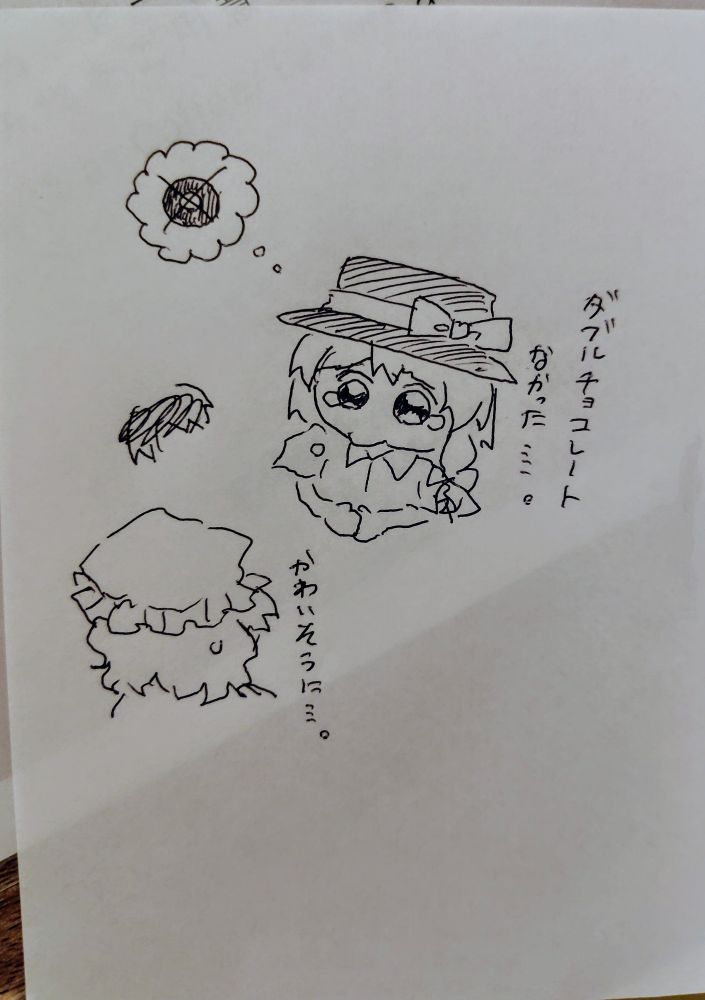 ダブルチョコレート
なかった……。
かわいそうに…。